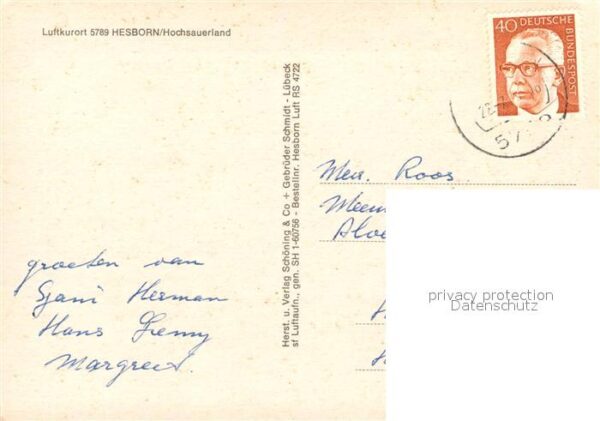 Luftkurort 5789 HESBORN/Hochsauerland
40 DEUTSCHE BUNDESPOST
Herst. u. Verlag Schöning & Co + Gebrüder Schmidt - Lübeck
sf Luftaufn., gen. SH 1-60756 - Bestellnr. Hesborn Luft RS 4722
groeten van
Herman
Hans
Margreet.
Mevr. Roos.
privacy protection
Datenschutz